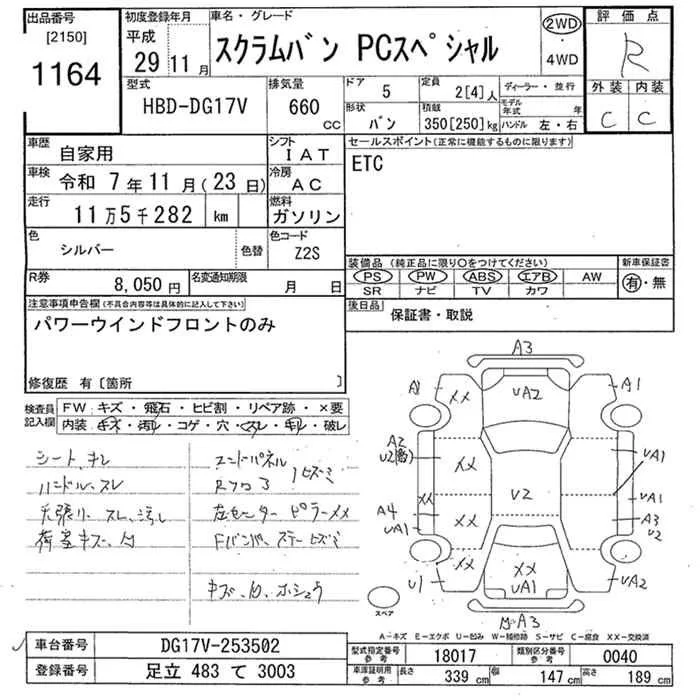 出品番号
[2150]
1164
初度登録年月
平成
29 11月
車名・グレード
スクラムバン PCスペシャル
2WD
・
4WD
評価点
R
外装 内装
C C
型式
HBD-DG17V
排気量
660 CC
ドア
5
定員
2[4]人
形状
バン
積載
350[250]kg
ディーラー・並行
モデル年式 年
ハンドル 左・右
車歴
自家用
シフト
IAT
車検 令和 7年11月(23日)
冷房
AC
走行
11万5千282 km
燃料
ガソリン
色
シルバー
色替
色コード
Z2S
R券
8,050円
名変通知期限
月 日
セールスポイント(正常に機能するものに限ります)
ETC
装備品 (純正品に限り○をつけてください)
PS PW ABS エアB AW
SR ナビ TV カワ
新車保証書
有・無
後日品
保証書・取説
注意事項申告欄(不具合内容等は具体的に記入して下さい)
パワーウインドフロントのみ
修復歴 有〔箇所 〕
検査員記入欄
FW・キズ・飛石・ヒビ割・リペア跡・×要
内装・キズ・汚れ・コゲ・穴・スレ・キレ・破レ
シート、キレ
ハンドル、スレ
天張リ、スレ、汚レ
荷室キズ、凹
エンドパネル
左センターピラーメメ
キズ、凹、ホシュウ
A3
A1 XX UA2 A1
A2
U2
XX
UA1
XX
U2
UA1
A4
XX
A3
UA1
U2
U1
XX
XX
UA1
UA2
A3
スペア
A-キズ E-エクボ U-凹み W-補修跡 S-サビ C-腐食 XX-交換済
車台番号
DG17V-253502
登録番号
足立 483 て 3003
型式指定番号
参考
18017
類別区分番号
参考
0040
車庫証明用
参考
長さ 339 cm 幅 147 cm 高さ 189 cm